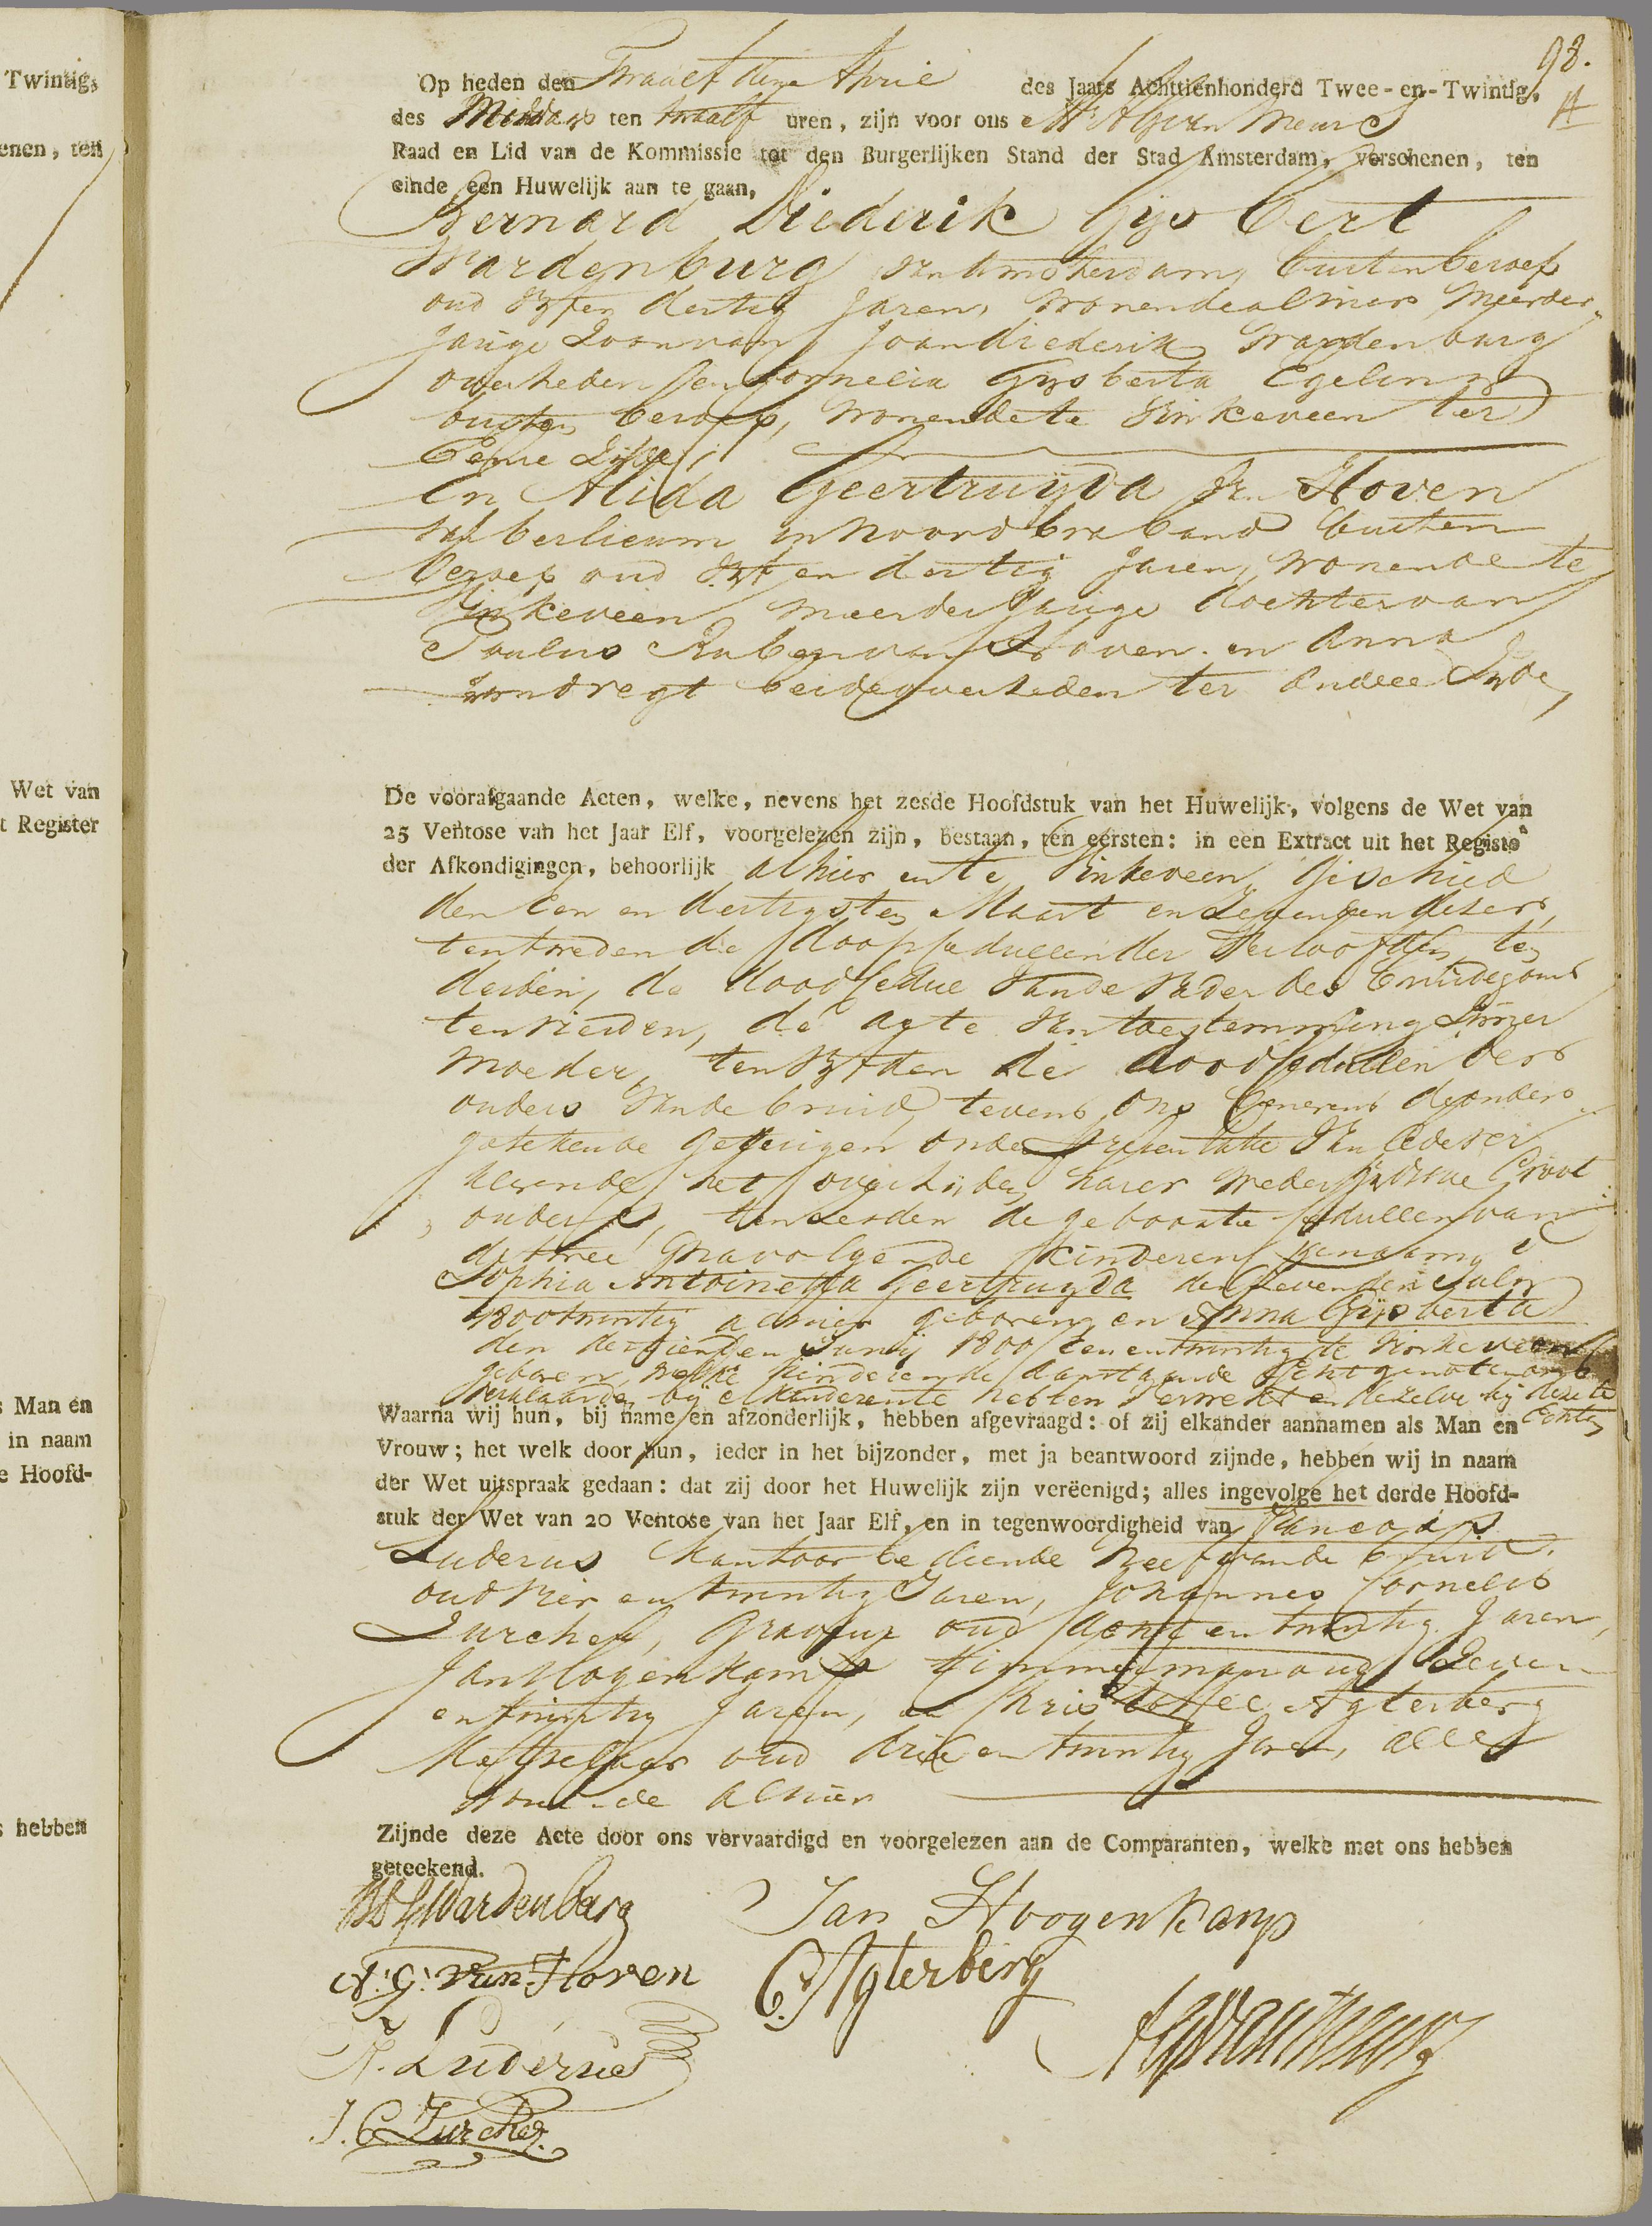 Twintig,
enen, ten
Wet van
t Register
s Man en
in naam
e Hoofd-
s hebben
98.
Op heden den Twaalfden April des Jaars Achttienhonderd Twee-en-Twintig,
des Middags ten twaalf uren, zijn voor ons
Raad en Lid van de Kommissie tot den Burgerlijken Stand der Stad Amsterdam, verschenen, ten
einde een Huwelijk aan te gaan,
Bernard Diederik Gijsbert
Wardenburg van Amsterdam, buiten beroep
oud Vyf en dertig Jaren, wonende alhier Meerder
jarige Zoon van Joan diederik Wardenburg
overleden en Cornelia Gijsberta Egeling
buiten beroep, wonende te Vinkeveen ter
Eenre Zijde;
En Alida Geertruijda Vn Hoven
van berlicum in Noord braband buiten
beroep oud Vyf en dertig Jaren, wonende te
Vinkeveen meerderjarige dochter van
Paulus Ruben van Hoven en Anna
beide overleden ter Andere Zyde,
De voorafgaande Acten, welke, nevens het zesde Hoofdstuk van het Huwelijk, volgens de Wet van
25 Ventose van het Jaar Elf, voorgelezen zijn, bestaan, ten eersten: in een Extract uit het Registe
der Afkondigingen, behoorlijk alhier en te Vinkeveen Geschied
den Een en dertigsten Maart en Zevenden dezer,
ten tweeden de doopcedullen der Verloofden, ten
derden, de doodcedul van de Vader des bruidegoms
ten vierden, de acte van toestemming Zijner
Moeder, ten Vyfden de doodcedullen der
ouders van de bruid, tevens ons benevens de onder
getekende getuigen onder presentatie Van Eede ver
klerende het overlijden harer wederzydsche Groot
ouders, ten zesden de geboorte cedullen van
de twee navolgende kinderen genaamd
Sophia Antoinetta Geertruyda den Zevenden July
1800 twintig alhier geboren, en Anna Gijsberta
den dertienden Junij 1800 een en twintig te Vinkeveen
geboren, welke kinderen de aanstaande Echtgenoten
verklaarden bij elkanderen te hebben verwekt en dezelve bij deze te
Echten
Waarna wij hun, bij name en afzonderlijk, hebben afgevraagd: of zij elkander aannamen als Man en
Vrouw; het welk door hun, ieder in het bijzonder, met ja beantwoord zijnde, hebben wij in naam
der Wet uitspraak gedaan: dat zij door het Huwelijk zijn verëenigd; alles ingevolge het derde Hoofd-
stuk der Wet van 20 Ventose van het Jaar Elf, en in tegenwoordigheid van
Luderus kantoorbediende Neef van de bruid.
oud Vier en twintig Jaren, Johannes Cornelis
Zurcher, Graveur oud acht en twintig Jaren,
Jan Hogenkamp timmerman oud Zeven
en twintig Jaren, en Christoffel Agterberg
Metselaar oud drie en twintig Jaren, alle
wonende alhier
Zijnde deze Acte door ons vervaardigd en voorgelezen aan de Comparanten, welke met ons hebben
geteekend.
BDGWardenburg
Jan Hoogenkamp
A: G: van Hoven
C. Agterberg
F. Luderus
J. C. Zurcher.